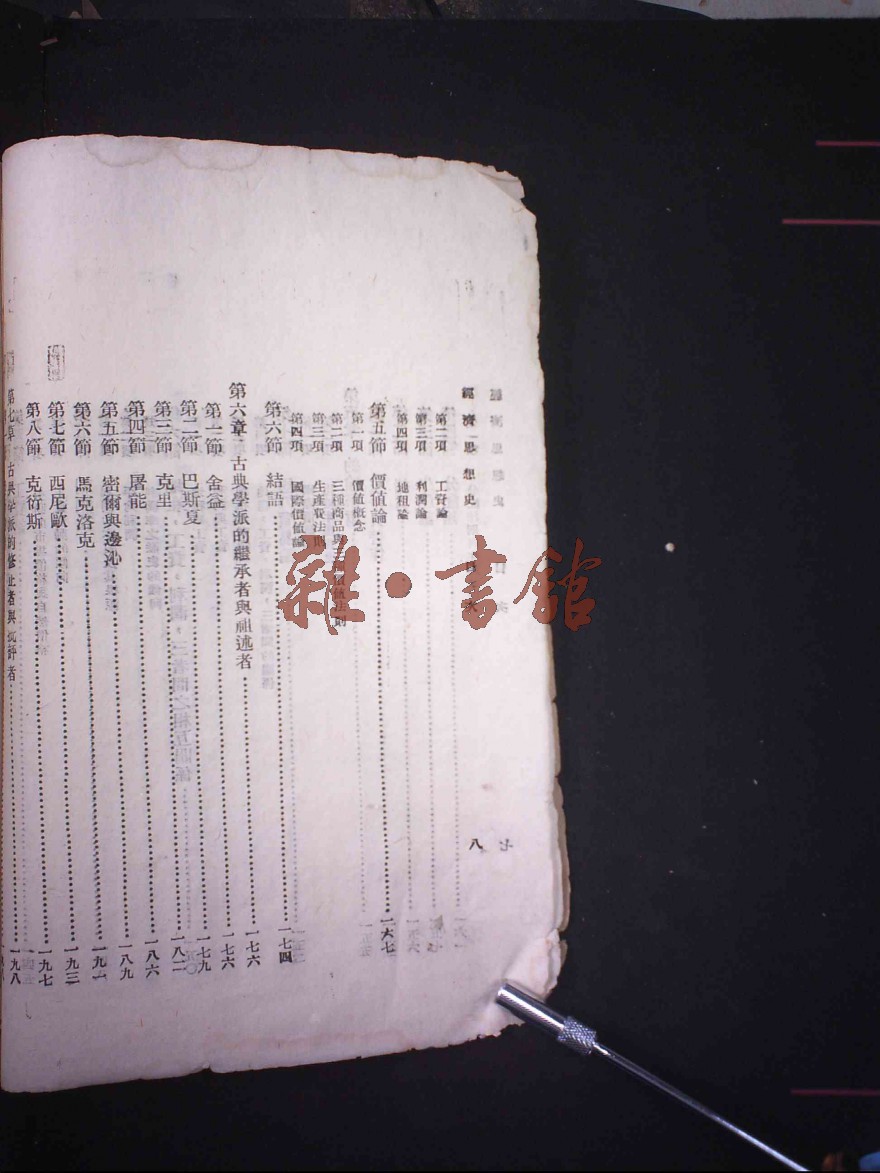 經濟思想史 目次
八
第二項 工資論
第三項 利潤論
第四項 地租論
第五節 價值論……一六七
第一項 價值概念
第二項 三種商品與三種價值法則
第三項 生產費法則
第四項 國際價值論
第六節 結語……一七四
第六章 古典學派的繼承者與祖述者……一七六
第一節 舍益……一七六
第二節 巴斯夏……一七九
第三節 克里……一八二
第四節 屠能……一八六
第五節 密爾與邊沁……一八九
第六節 馬克洛克……一九一
第七節 西尼歐……一九三
第八節 克衍斯……一九七
第七章 古典學派的修正者與批評者……一九八
雜·書館